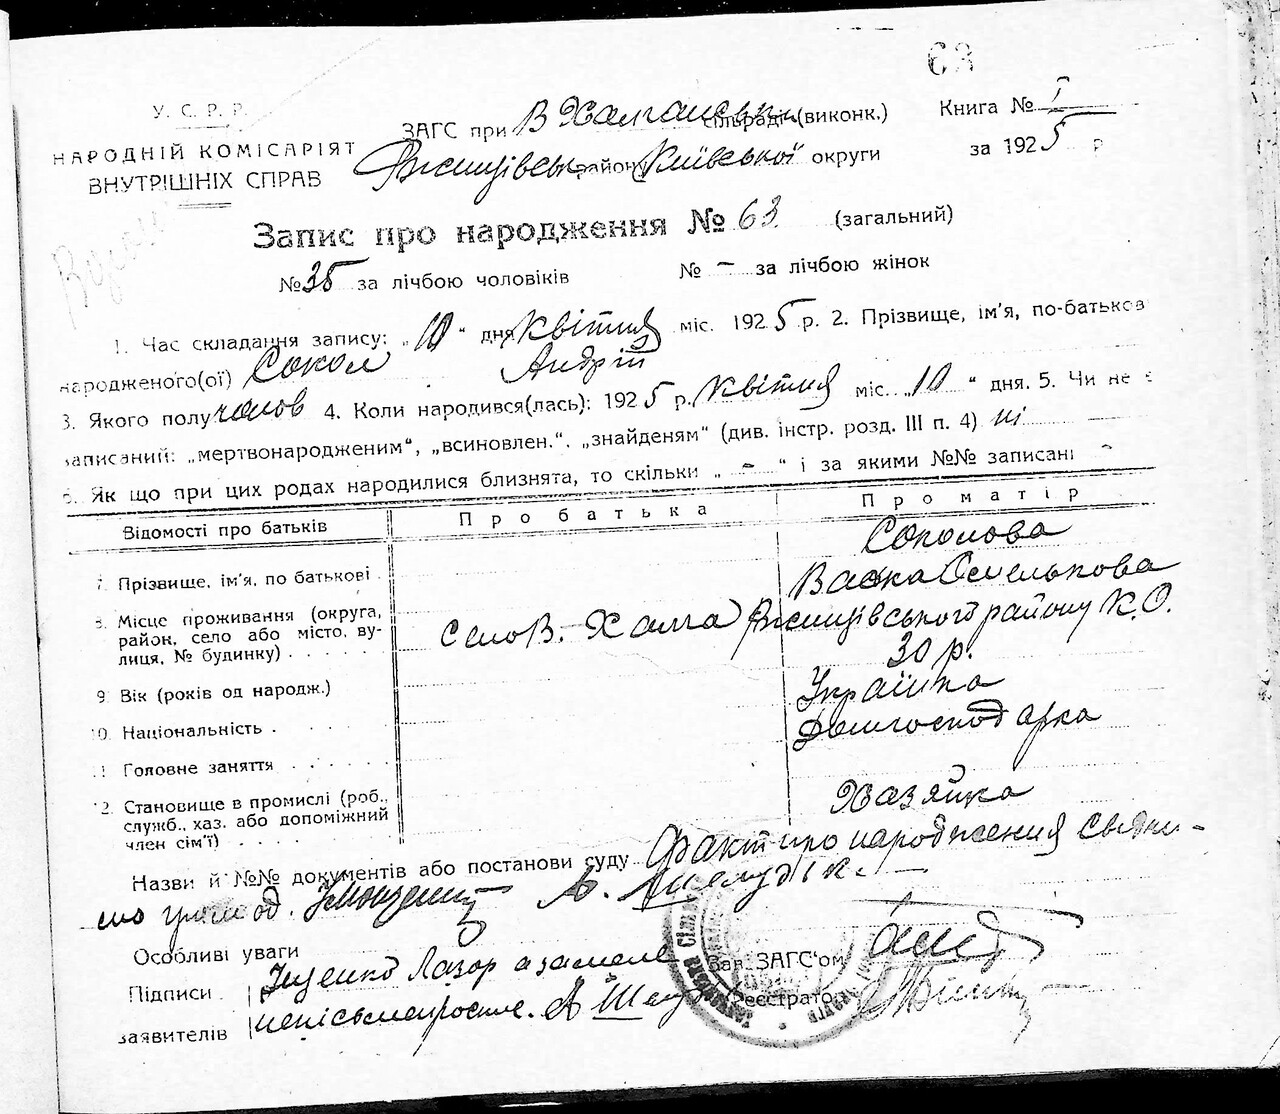 63
У. С. Р. Р.
НАРОДНІЙ КОМІСАРІЯТ
ВНУТРІШНІХ СПРАВ
ЗАГС при В Халчанськ. сільраді (виконк.)
Ржищівськ району Київської округи
Книга № I
за 1925 р
Запис про народження № 63. (загальний)
№ 35 за лічбою чоловіків № – за лічбою жінок
1. Час складання запису: „10“ дня Квітня міс. 1925 р. 2. Прізвище, ім'я, по-батьков
народженого(ої) Сокол Андрій
3. Якого полу чолов 4. Коли народився(лась): 1925 р. Квітня міс. „10“ дня. 5. Чи не є
записаний: „мертвонародженим“, „всиновлен.“, „знайденям“ (див. інстр. розд. III п. 4) ні
6. Як що при цих родах народилися близнята, то скільки „ – “ і за якими №№ записані –
Відомості про батьків Про батька Про матір
7. Прізвище, ім'я, по батькові Соколова
Васка Омелькова
8. Місце проживання (округа, район, село або місто, вулиця, № будинку) село В. Халча Ржищівського району К.О.
9. Вік (років од народж.) 30 р.
10. Національність Українка
11. Головне заняття Домгосподарка
12. Становище в промислі (роб., служб., хаз. або допоміжний член сім'ї) Хазяйка
Назви й №№ документів або постанови суду Факт про народження
Особливі уваги
Підписи Іщенко Лазор а за меле
заявителів непісьме
Зав. ЗАГС'ом
Реєстратор